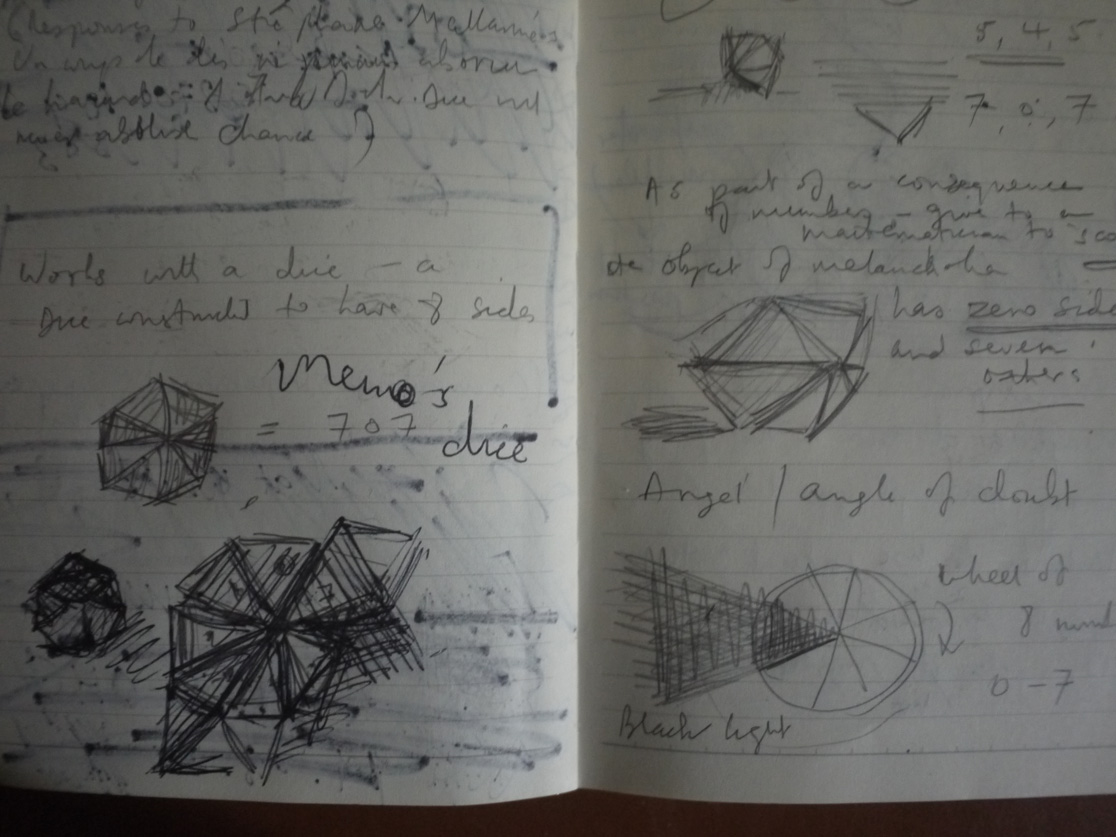 (Response to Stéphane Mallarmé's
Un coup de dés jamais abolira
le hasard
never abolish chance )
Works with a dice – a
Dice constructed to have 8 sides
Memo's
= 707
dice
5, 4, 5
7, 0, 7
As part of a consequence
of number – give to a
mathematician to
object of melancholia
has zero side
and seven
others
Angel / angle of doubt
wheel of
8 numb
0 – 7
Black light